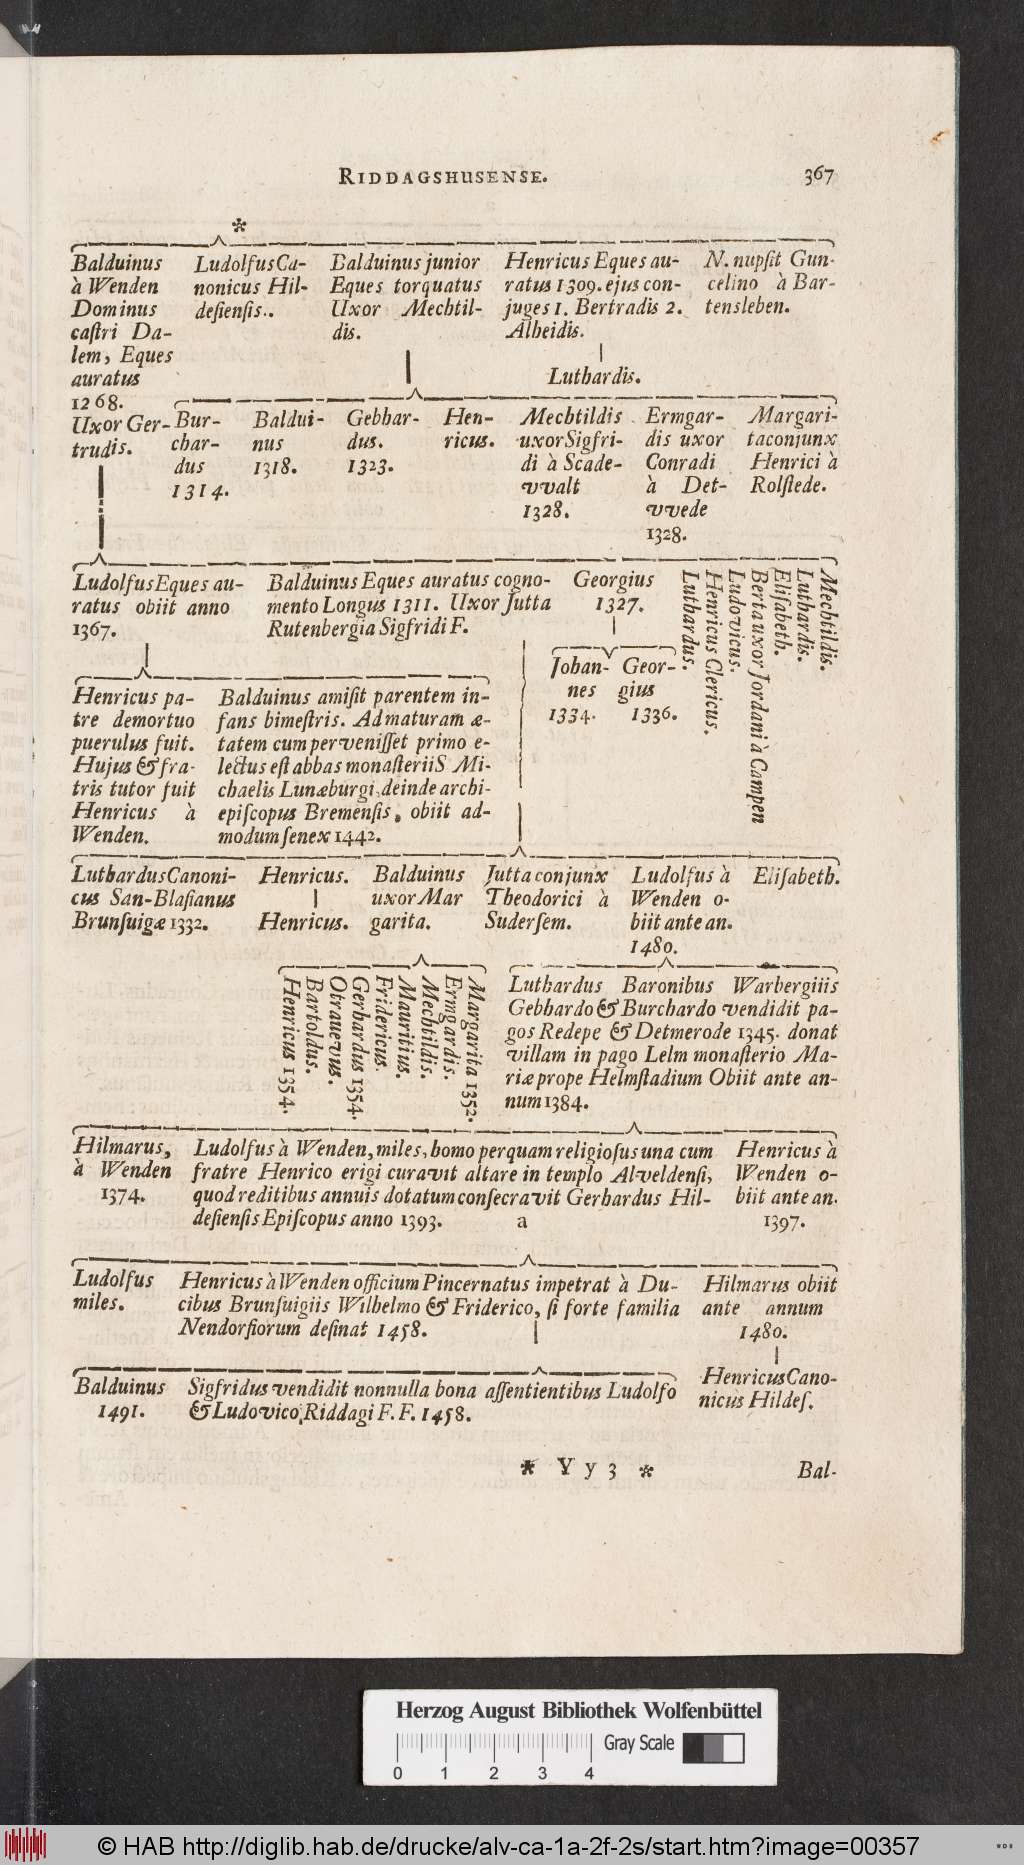 RIDDAGSHUSENSE. 367
*
Balduinus
à Wenden
Dominus
castri Da-
lem, Eques
auratus
1268.
Uxor Ger-
trudis.
Ludolfus Ca-
nonicus Hil-
desiensis..
Balduinus junior
Eques torquatus
Uxor Mechtil-
dis.
Henricus Eques au-
ratus 1309. ejus con-
juges 1. Bertradis 2.
Alheidis.
Luthardis.
N. nupsit Gun-
celino à Bar-
tensleben.
Bur-
char-
dus
1314.
Baldui-
nus
1318.
Gebhar-
dus.
1323.
Hen-
ricus.
Mechtildis
uxor Sigfri-
di à Scade-
vvalt
1328.
Ermgar-
dis uxor
Conradi
à Det-
vvede
1328.
Margari-
ta conjunx
Henrici à
Rolstede.
Ludolfus Eques au-
ratus obiit anno
1367.
Balduinus Eques auratus cogno-
mento Longus 1311. Uxor Jutta
Rutenbergia Sigfridi F.
Georgius
1327.
Johan-
nes
1334.
Geor-
gius
1336.
Luthardus.
Henricus Clericus.
Ludovicus.
Berta uxor Jordani à Campen
Elisabeth.
Luthardis.
Mechtildis.
Henricus pa-
tre demortuo
puerulus fuit.
Hujus & fra-
tris tutor fuit
Henricus à
Wenden.
Balduinus amisit parentem in-
fans bimestris. Ad maturam æ-
tatem cum pervenisset primo e-
lectus est abbas monasterii S Mi-
chaelis Lunæburgi, deinde archi-
episcopus Bremensis, obiit ad-
modum senex 1442.
Luthardus Canoni-
cus San-Blasianus
Brunsuigæ 1332.
Henricus.
Henricus.
Balduinus
uxor Mar
garita.
Jutta conjunx
Theodorici à
Sudersem.
Ludolfus à
Wenden o-
biit ante an.
1480.
Elisabeth.
Henricus 1354.
Bartoldus.
Otrauevus.
Gerhardus 1354.
Fridericus.
Mauritius.
Mechtildis.
Ermgardis.
Margarita 1352.
Luthardus Baronibus Warbergiiis
Gebhardo & Burchardo vendidit pa-
gos Redepe & Detmerode 1345. donat
villam in pago Lelm monasterio Ma-
riæ prope Helmstadium Obiit ante an-
num 1384.
Hilmarus,
à Wenden
1374.
Ludolfus à Wenden, miles, homo perquam religiosus una cum
fratre Henrico erigi curavit altare in templo Alveldensi,
quod reditibus annuis dotatum consecravit Gerhardus Hil-
desiensis Episcopus anno 1393. a
Henricus à
Wenden o-
biit ante an.
1397.
Ludolfus
miles.
Henricus à Wenden officium Pincernatus impetrat à Du-
cibus Brunsuigiis Wilhelmo & Friderico, si forte familia
Nendorfiorum desinat 1458.
Hilmarus obiit
ante annum
1480.
Henricus Cano-
nicus Hildes.
Balduinus
1491.
Sigfridus vendidit nonnulla bona assentientibus Ludolfo
& Ludovico, Riddagi F. F. 1458.
* Y y 3 * Bal-
Herzog August Bibliothek Wolfenbüttel
0 1 2 3 4 Gray Scale
© HAB http://diglib.hab.de/drucke/alv-ca-1a-2f-2s/start.htm?image=00357